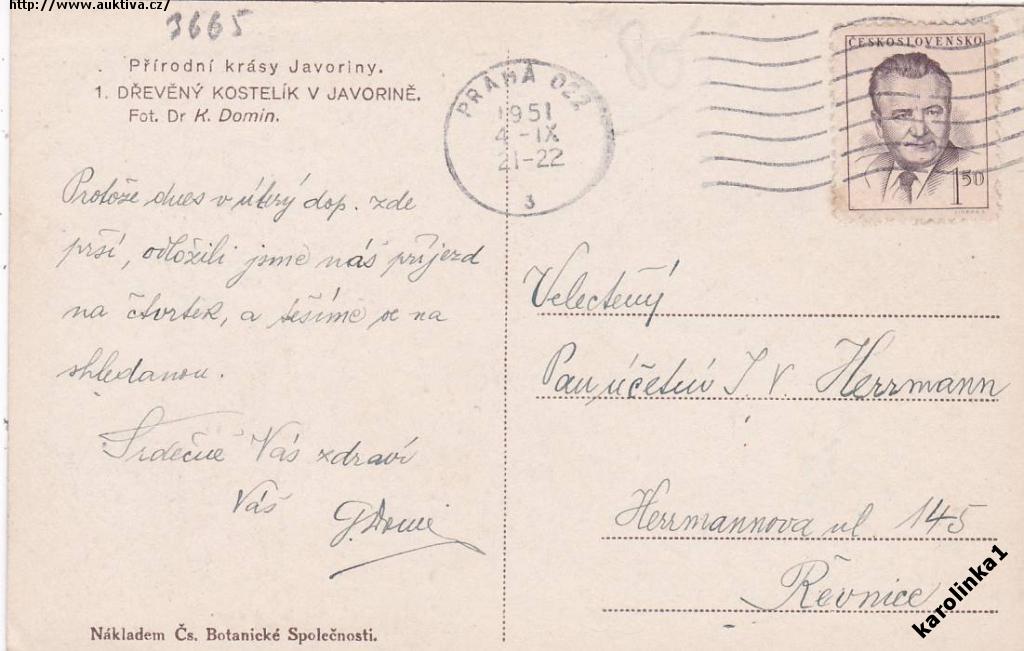 http://www.auktiva.cz/
3665
80
Přírodní krásy Javoriny.
1. DŘEVĚNÝ KOSTELÍK V JAVORINĚ.
Fot. Dr K. Domin.
PRAHA 022
1951
4-IX
21-22
3
ČESKOSLOVENSKO
1 50
Protože dnes v úterý dop. zde
prší, odložili jsme náš příjezd
na čtvrtek, a těšíme se na
shledanou.
Srdečně Vás zdraví
Váš
Velectěný
Pan účetní J. V. Herrmann
Herrmannova ul. 145
Řevnice
Nákladem Čs. Botanické Společnosti.
karolinka1